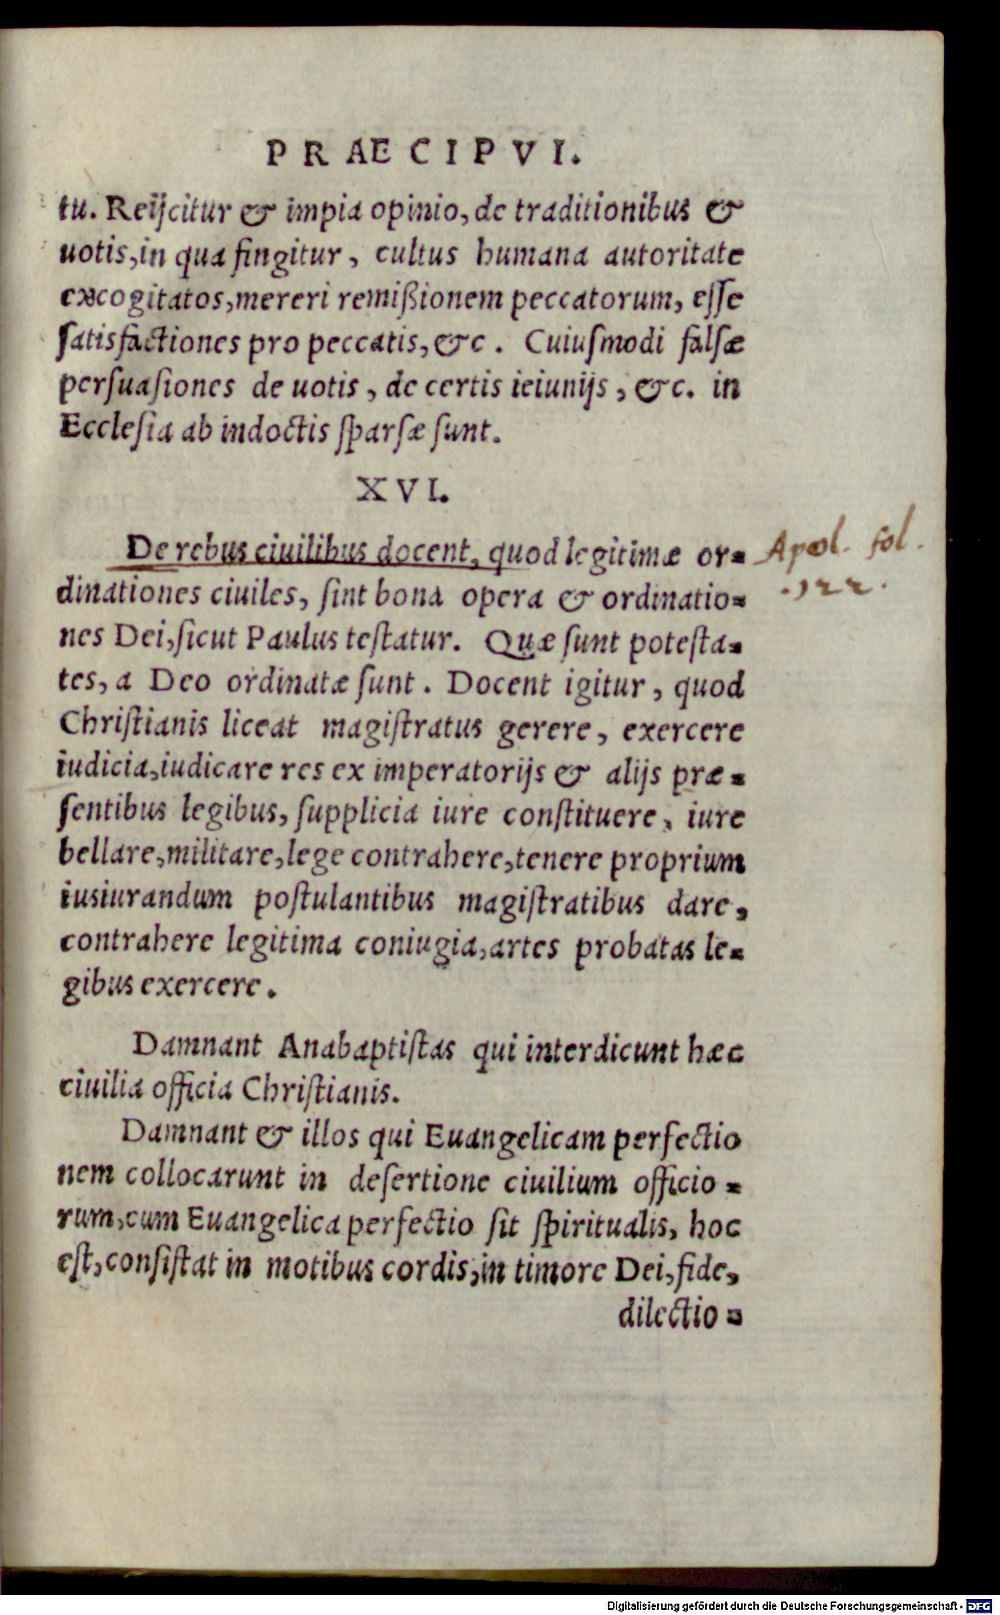 PRAECIPVI.
tu. Reijcitur & impia opinio, de traditionibus &
uotis, in qua fingitur, cultus humana autoritate
excogitatos, mereri remißionem peccatorum, esse
satisfactiones pro peccatis, &c. Cuiusmodi falsæ
persuasiones de uotis, de certis ieiunijs, &c. in
Ecclesia ab indoctis sparsæ sunt.
XVI.
De rebus ciuilibus docent, quod legitimæ or-
Apol. fol.
.122.
dinationes ciuiles, sint bona opera & ordinatio-
nes Dei, sicut Paulus testatur. Quæ sunt potesta-
tes, a Deo ordinatæ sunt. Docent igitur, quod
Christianis liceat magistratus gerere, exercere
iudicia, iudicare res ex imperatorijs & alijs præ-
sentibus legibus, supplicia iure constituere, iure
bellare, militare, lege contrahere, tenere proprium
iusiurandum postulantibus magistratibus dare,
contrahere legitima coniugia, artes probatas le-
gibus exercere.
Damnant Anabaptistas qui interdicunt hæc
ciuilia officia Christianis.
Damnant & illos qui Euangelicam perfectio
nem collocarunt in desertione ciuilium officio-
rum, cum Euangelica perfectio sit spiritualis, hoc
est, consistat in motibus cordis, in timore Dei, fide,
dilectio-
Digitalisierung gefördert durch die Deutsche Forschungsgemeinschaft - DFG